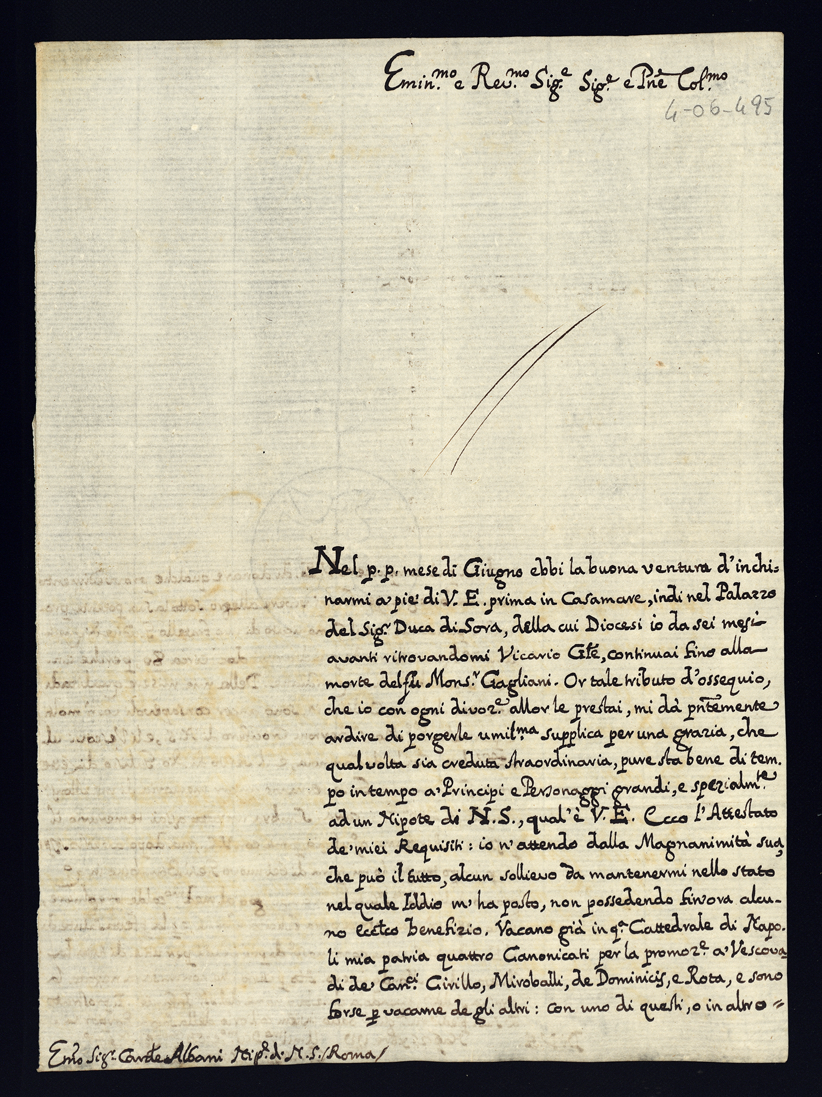 Emin.mo e Rev.mo Sig.e Sig.e e Pne Col.mo
4-06-495
Nel p. p. mese di Giugno ebbi la buona ventura d'inchi-
narmi a' pie' di V. E. prima in Casamare, indi nel Palazzo
del Sig.r Duca di Sora, della cui Diocesi io da sei mesi
avanti ritrovandomi Vicario Gñle, continuai fino alla
morte del fu Mons.r Gagliani. Or tale tributo d'ossequio,
che io con ogni divoz.e allor le prestai, mi dà pntemente
ardire di porgerle umil.ma supplica per una grazia, che
qualvolta sia creduta straordinaria, pure sta bene di tem-
po in tempo a' Principi e Personaggi grandi, e spezialm.te
ad un Nipote di N. S., qual'è V. E. Ecco l'Attestato
de' miei Requisiti: io n'attendo dalla Magnanimità sua,
che può il tutto, alcun sollievo da mantenermi nello stato
nel quale Iddio m'ha posto, non possedendo finora alcu-
no eccłco benefizio. Vacano già in q.a Cattedrale di Napo-
li mia patria quattro Canonicati per la promoz.e a' Vescova-
di de' Can.ci Cirillo, Miroballi, de Dominicis, e Rota, e sono
forse p vacarne degli altri: con uno di questi, o in altro =
Emo Sig.r Cardle Albani Nip.e di N. S. /Roma/